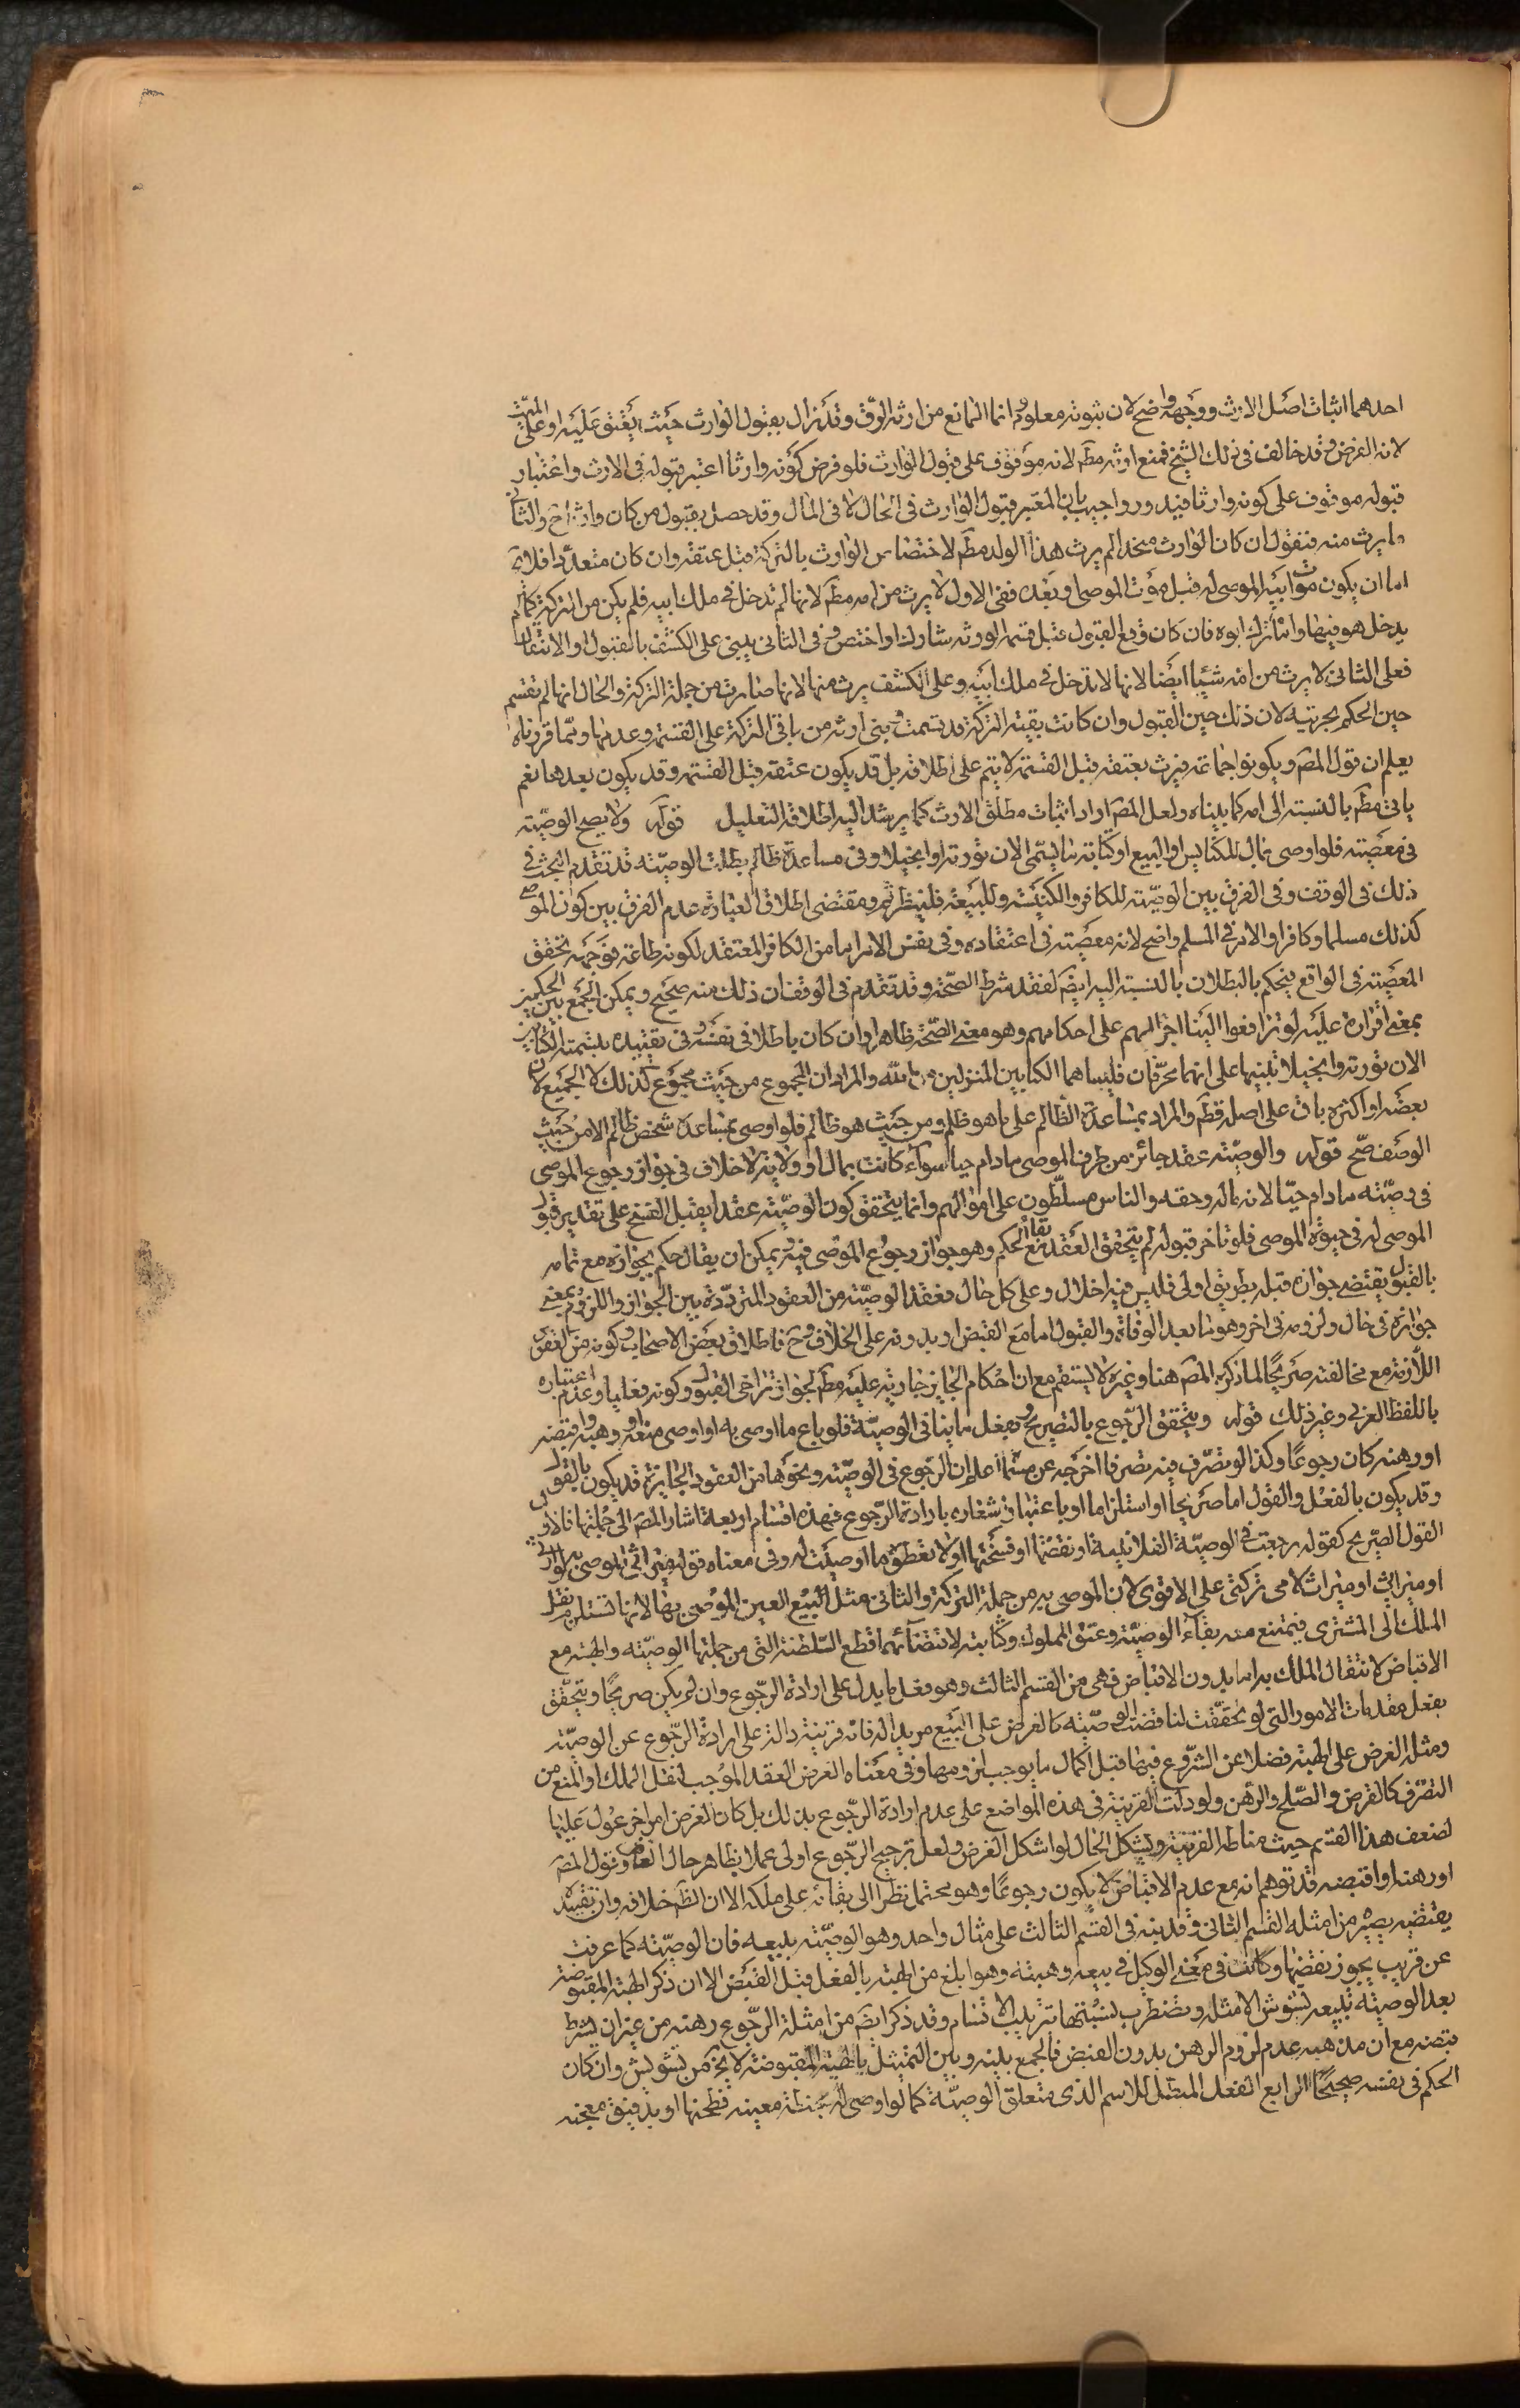 احدهما اثبات اصل الارث ووجهه واضح لان ثبوته معلوم وانما المانع من ارثه الرق وقد زال بقبول الوارث حيث يعتق عليه او على الميت
لانه الفرض وقد خالف في ذلك الشيخ فمنع ارثه مطم لانه موقوف على قبول الوارث فلو فرض كونه وارثا اعتبر قبوله في الارث واعتبار
قبوله موقوف على كونه وارثا فيدور واجيب بان المعتبر قبول الوارث في الحال لا في المال وقد حصل بقبول من كان وارثا ح والثاني
ما يرث منه فنقول ان كان الوارث متحدا لم يرث هذا الولد مطم لاختصاص الوارث بالتركة قبل عتقه وان كان متعددا فلا يخ
اما ان يكون موت ابيه الموصى له قبل موت الموصي او بعده ففي الاول لا يرث من امه مطم لانها لم تدخل في ملك ابيه فلم يكن من التركة كما لم
يدخل هو فيها وانما ترك ابوه فان كان وقع القبول قبل قسمة الورثة شارك او اختص وفي الثاني يبنى على الكشف بالقبول او الانتقال
فعلى الثاني لا يرث من امه شيئا ايضا لانها لا تدخل في ملك ابيه وعلى الكشف يرث منها لانها صارت من جملة التركة والحال انها لم تقسم
حين الحكم بحريته لان ذلك حين القبول وان كانت بقية التركة قد قسمت وبنى ارثه من باقي التركة على القسمة وعدمها ومما قررناه
يعلم ان قول المصَ ويكونوا جماعة فيرث بعتقه قبل القسمة لا يتم على اطلاقه بل قد يكون عتقه قبل القسمة وقد يكون بعدها نعم
ياتي مطم بالنسبة الى امه كما بيناه ولعل المصَ اراد اثبات مطلق الارث كما يرشد اليه اطلاقه التعليل قوله ولا يصح الوصية
في معصية فلو اوصى بمال للكنايس او البيع او كتابة ما يسمى الان تورية او انجيلا وفي مساعدة ظالم بطلت الوصية قد تقدم البحث في
ذلك في الوقف وفي الفرق بين الوصية للكافر والكنيسة وللبيعة فلينظر ثم ومقتضى اطلاق العبارة عدم الفرق بين كون الموصي
كذلك مسلما وكافرا والامر في المسلم واضح لانه معصية في اعتقاده وفي نفس الامر اما من الكافر المعتقد لكونه طاعة فوجهه تحقق
المعصية في الواقع فيحكم بالبطلان بالنسبة اليه ايضَ لفقد شرط الصحة وقد تقدم في الوقف ان ذلك منه صحيح ويمكن الجمع بين الحكمين
بمعنى اقراره عليه لو ترافعوا الينا اجرالهم على احكامهم وهو معنى الصحة ظاهرا وان كان باطلا في نفسه وفي تقييده بتسمية الكتابين
الان تورية وانجيلا تنبيها على انهما محرفان فليسا هما الكتابين المنزلين من الله والمراد ان المجموع من حيث مجموع كذلك لا الجميع لان
بعضه او اكثره باق على اصله قطم والمراد بمساعدة الظالم على ما هو ظلم ومن حيث هو ظالم فلو اوصى بمساعدة شخص ظالم لا من حيث
الوصف صح قوله والوصية عقد جائز من طرف الموصي مادام حيا سواء كانت بمال او ولاية لا خلاف في جواز رجوع الموصي
في وصيته مادام حيا لانه ماله وحقه والناس مسلطون على اموالهم وانما يتحقق كون الوصية عقدا يقبل الفسخ على تقدير قبول
الموصى له في حيوة الموصي فلو تاخر قبوله لم يتحقق العقد مع بقاء الحكم وهو جواز رجوع الموصي فيه ويمكن ان يقال حكمه بجوازه مع تمامه
بالقبول يقتضي جوازه قبله بطريق اولى فليس فيه اخلال وعلى كل حال فعقد الوصية من العقود المترددة بين الجواز واللزوم بمعنى
جوازه في حال ولزومه في اخر وهو ما بعد الوفاة والقبول اما مع القبض او بدونه على الخلاف وح فاطلاق بعض الاصحاب كونه من العقود
اللازمة مع مخالفته صريحا لما ذكره المصَ هنا وغيره لا يستقيم مع ان احكام الجايز جارية عليه مطم لجواز تراخي القبول وكونه فعليا وعدم اعتباره
باللفظ العربي وغير ذلك قوله ويتحقق الرجوع بالتصريح وبفعل ما ينافي الوصية فلو باع ما اوصى به او اوصى ببيعه او وهبه واقبضه
او رهنه كان رجوعا وكذا لو تصرف فيه تصرفا اخرجه عن مسماه اعلم ان الرجوع في الوصية ونحوها من العقود الجايزة قد يكون بالقول
وقد يكون بالفعل والقول اما صريحا او استلزاما او باعتبار اشعاره بارادة الرجوع فهذه اقسام اربعة اشار المصَ الى جملتها فالاول
القول الصريح كقوله رجعت في الوصية الفلانية او نقضتها او فسختها او لا تعطوه ما اوصيت له وفي معناه قوله الموصى به لوارثي
او ميراثي او ميراث لا من تركتي على الاقوى لان الموصى به من جملة التركة والثاني مثل البيع العين الموصى بها لانها تستلزم نقل
الملك الى المشتري فيمتنع معه بقاء الوصية وعتق المملوك وكتابته لاقتضائهما قطع السلطنة التي من جملتها الوصية والهبة مع
الاقباض لانتقال الملك به اما بدون الاقباض فهي من القسم الثالث وهو فعل ما يدل على ارادة الرجوع وان لم يكن صريحا ويتحقق
بفعل مقدمات الامور التي لو تحققت لناقضت الوصية كالعرض على البيع مريدا له فانه قرينة دالة على ارادة الرجوع عن الوصية
ومثله العرض على الهبة فضلا عن الشروع فيها قبل اكمال ما يوجب لزومها وفي معناه العرض العقد الموجب لنقل الملك او المنع من
التصرف كالقرض والصلح والرهن ولو دلت القرينة في هذه المواضع على عدم ارادة الرجوع بذلك بل كان لغرض امر اخر عول عليها
لضعف هذا القسم حيث مناطه القرينة ويشكل الحال لو اشكل الغرض ولعل ترجيح الرجوع اولى عملا بظاهر حال العارض وقول المصَ
او رهنه او اقبضه قد توهم انه مع عدم الاقباض لا يكون رجوعا وهو محتمل نظرا الى بقائه على ملكه الا ان الظَ خلافه وان تقييده
يقتضيه يصير من امثلة القسم الثاني وقد نبه في القسم الثالث على مثال واحد وهو الوصية ببيعه فان الوصية كما عرفت
عن قريب يجوز نقضها وكانت في معنى الوكيل في بيعه وهبته وهو ابلغ من الهبة بالفعل قبل القبض الا ان ذكر الهبة المقبوضة
بعد الوصية ببيعه تشوش الامثلة وتضطرب بسببها ترتيب الاقسام وقد ذكر ايضَ من امثلة الرجوع رهنه من غير ان يشرط
قبضه مع ان مذهبه عدم لزوم الرهن بدون القبض فالجمع بينه وبين التمثيل بالهبة المقبوضة لا يخ من تشويش وان كان
الحكم في نفسه صحيحا الرابع الفعل المبطل للاسم الذي متعلق الوصية كما لو اوصى له بحنطة معينة فطحنها او بدقيق فعجنه